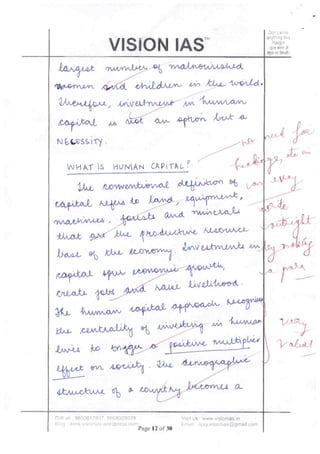 VISION IAS™
Don't write
anything this
margin
largest number of malnourished
women and children in the world.
Therefore, investment in human
capital is not an option but a
NECESSITY.
no need for
headings, etc in
an essay
WHAT IS HUMAN CAPITAL?
The conventional definition of
capital refers to land, equipment,
machines, forests and minerals
that are the productive resource
base of the economy. Investments in
capital spur economic growth,
create jobs and raise livelihood.
write
outright
by making
a para
The human capital approach recognises
the centrality of investing in human
lives to trigger a positive multiplier
effect on society. The demographic
structure of a country becomes a
very
Valid
Page 12 of 30
Visit us : www.visionias.in